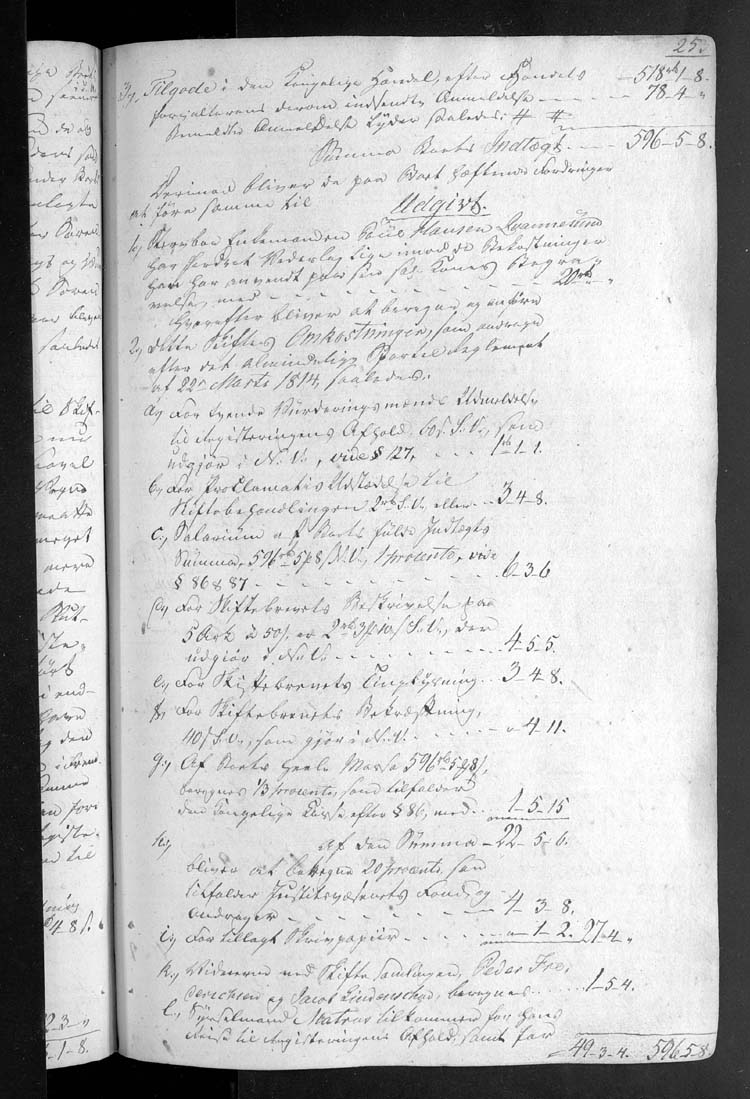 25.
3/, Tilgode i den Kongelige Handel, efter Handels 518 rb 1-8.
forvalterens derom indsendte Anmeldelse - - - - 78-4-"
bemeldte Anmeldelse lyder saaledes: # #
Summa Boets Indtægt. - - - 596-5-8.
Derimod bliver de paa Boet hæftende Fordringer
at føre samme til Udgivt.
1, Sterbboe Enkemanden Poül Hansen Qvannesünd
har fordret Vederlag lige imod de Bekostninger
han har anvendt paa sin sal. Kones Begra-
velse, med - - - - - - - - - - - 20 rb " "
Hvorefter bliver at beregne og anføre
2, dette Skiftes Omkostninger, som andrage
efter det almindelige Sportel Reglement
af 22de Marts 1814, saaledes:
a, For tvende Vürderingsmænds Udmeldelse
til Registeringens Afhold, 60 s. S.V., som
udgiør i N.V., vide § 127, - - - 1 rb 1-1.
b, For Proklamatis Udstædelse til
Skiftebehandlingen 2 rb S.V. eller - - 3-4-8.
c, Salarium af Boets fulde Indtægts
Summa, 596 rb 5 8 s N.V., 1 procento, vide
§ 86 & 87 - - - - - - - - - 6-3-6
d, For Skiftebrevets Beskrivelse paa
5 Ark à 50 s. er 2 rb 3 10 s S.V., der
udgiør i N.V. - - - - - - - 4-5-5.
e, For Skiftebrevets Tinglysning - - 3-4-8.
f, For Skiftebrevets Bekræftning,
40 s S.V., som giør i N.V. - - - - " 4-11.
g, Af Boets heele Massa 596 rb 5 8 s,
beregnes 1/3 procento, som tilfalder
den Kongelige Kasse efter § 86, med - - 1-5-15
h, af den Summa - 22-5-6.
bliver at beregne 20 procento, som
tilfalder Justitsvæsenets Fond, og
andrager - - - - - - - - - 4-3-8.
i, For tillagt Skrivpapiir - - - - - " 1-2. 27-4-"
k, Vidnerne ved Skifte Samlingen, Peder Fre-
derichsen og Jacob Lindenschou, beregnes - - - 1-5-4.
l, Sysselmand Matras tilkommer for hans
Reise til Registeringens Afhold, samt for
49-3-4. 596-5-8